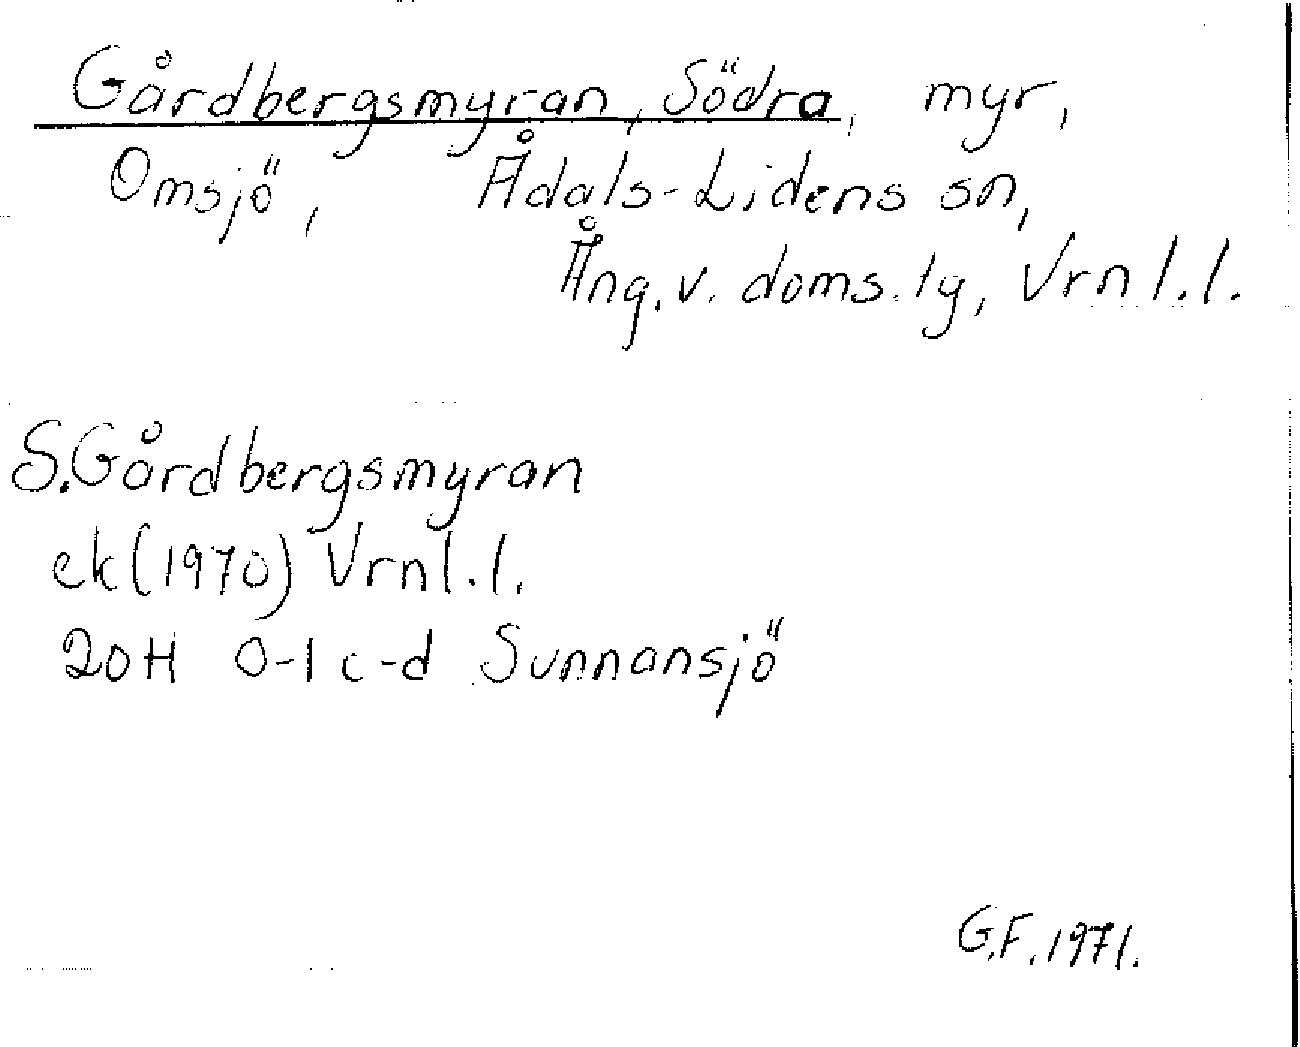 Gårdbergsmyran, Södra, myr,
Omsjö, Ådals-Lidens sn,
Ång. v. doms. lg, Vrnl.l.
S.Gårdbergsmyran
ek(1970) Vrnl.l.
20H 0-1 c-d Sunnansjö
G.F. 1971.